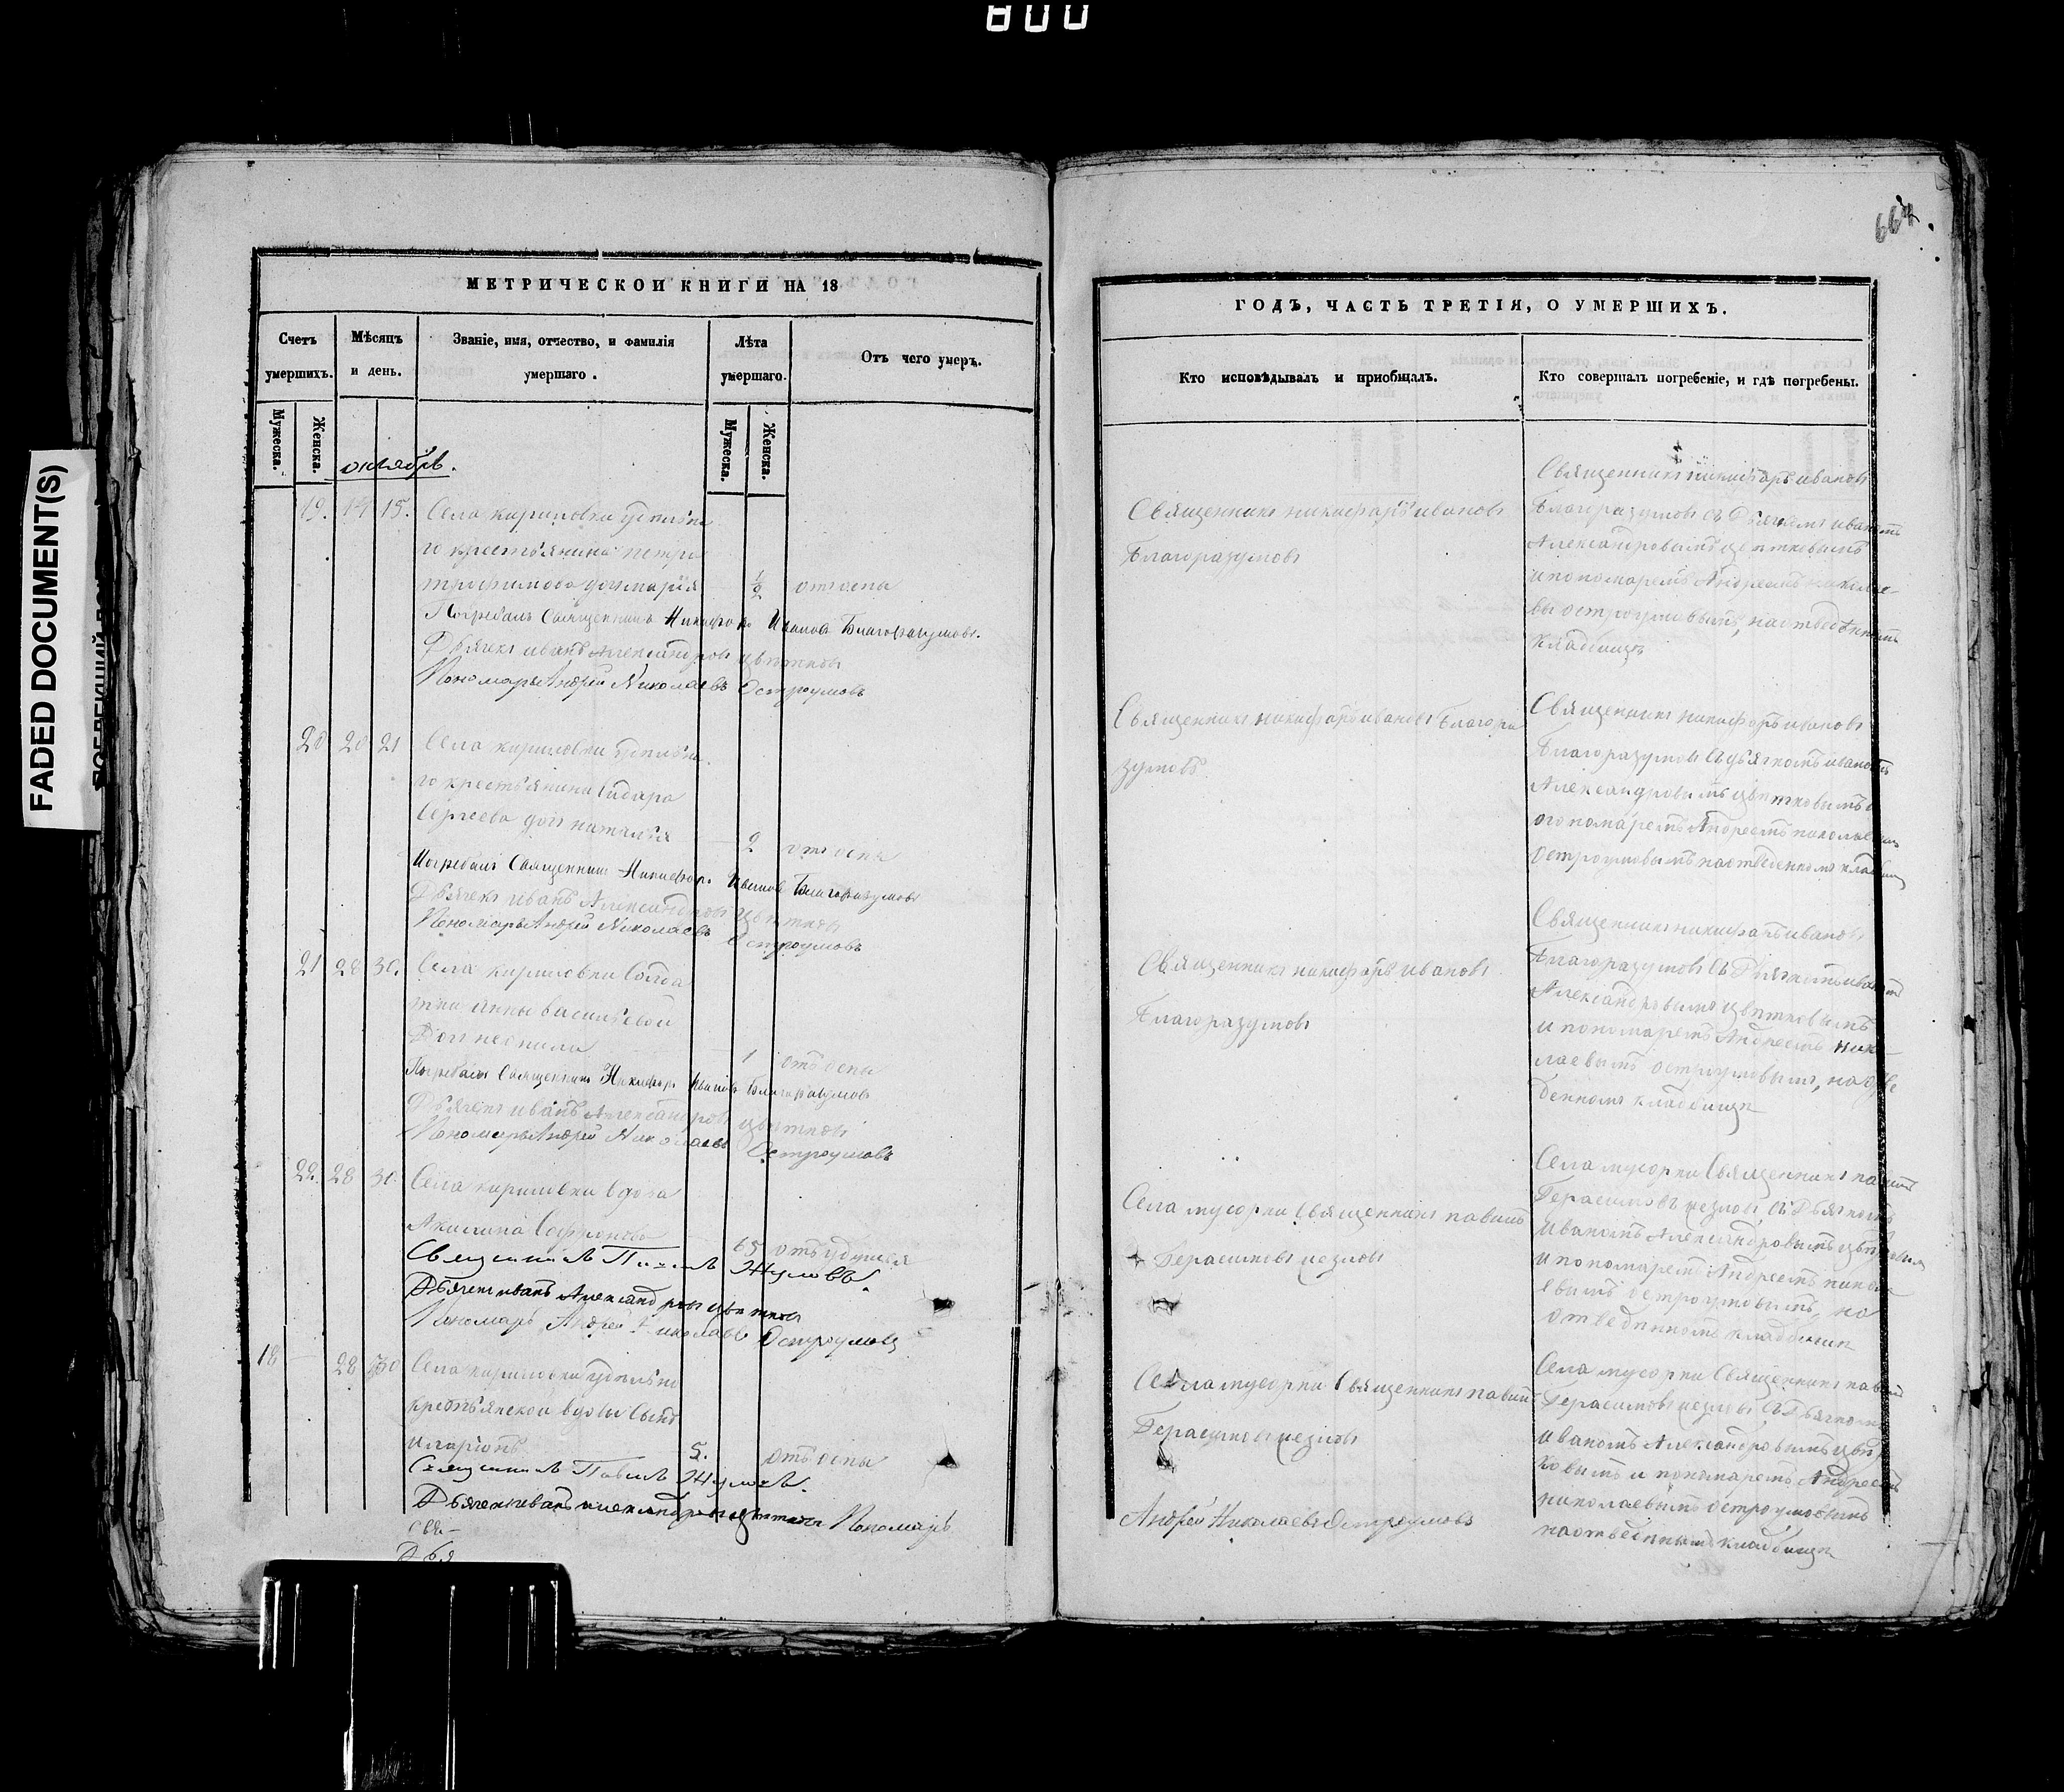 800
FADED DOCUMENT(S)
667.
МЕТРИЧЕСКОЙ КНИГИ НА 18
Счетъ умершихъ.
Мужеска.
Женска.
Мѣсяцъ и день.
Званіе, имя, отчество, и фамилія умершаго.
Лѣта умершаго.
Мужеска.
Женска.
Отъ чего умеръ.
октябрь.
19. 14 15. Села кириловки удѣльна
го крестьянина петра
трофимова дочь марія 1/2 отъ оспы
Погребалъ Священникъ Никифоръ Ивановъ Благоразумовъ.
Дьячекъ иванъ Александровъ цвѣтковъ
Пономарь Андрей Николаевъ Остроумовъ
20 20 21 Села кириловки удѣльна
го крестьянина Сидара
Сергеева дочь наталья 2 отъ оспы
Погребалъ Священникъ Никифоръ Ивановъ Благоразумовъ
Дьячекъ иванъ Александровъ цвѣтковъ
Пономарь Андрей Николаевъ Остроумовъ
21 28 30. Села кириловки Солда
тки анны васильевой
Дочь неонила 1 отъ оспы
Погребалъ Священникъ Никифоръ Ивановъ Благоразумовъ
Дьячекъ иванъ Александровъ цвѣтковъ
Пономарь Андрей Николаевъ Остроумовъ
22. 28 30. Села кириловки вдова
Акилина Софронова 65 отъ удушья
Священникъ Павелъ
Дьячекъ иванъ Александровъ цвѣтковъ
Пономарь Андрей Николаевъ Остроумовъ
18 28 30 Села кириловки удѣльно
крестьянской вдовы Сынъ
иларіонъ 5. отъ оспы
Священникъ Павелъ
Дьячекъ иванъ александровъ цвѣтковъ Пономарь
Свя
Дья
ГОДЪ, ЧАСТЬ ТРЕТІЯ, О УМЕРШИХЪ.
Кто исповѣдывалъ и пріобщалъ.
Кто совершалъ погребеніе, и гдѣ погребены.
Священникъ никифаръ ивановъ
Благоразумовъ
Священникъ никифаръ ивановъ
Благоразумовъ съ Дьячкомъ иваномъ
Александровымъ цвѣтковымъ
и пономаремъ Андреемъ николае-
вы остроумовымъ, на отведенномъ
кладбищѣ
Священникъ никифаръ ивановъ Благора
зумовъ.
Священникъ никифоръ ивановъ
Благоразумовъ Съ дьячкомъ иваномъ
Александровымъ цвѣтковымъ
пономаремъ Андреемъ николаевым
остроумовымъ на отведенномъ кладбищ
Священникъ никифаръ ивановъ
Благоразумовъ
Священникъ никифаръ ивановъ
Благоразумовъ Съ Дьячкомъ иваном
Александровымъ цвѣтковымъ
и пономаремъ Андреемъ нико
лаевымъ остроумовымъ, на отве
денномъ кладбищѣ
Села мусорки Священникъ павилъ
Герасимовъ
Села мусорки Священникъ павилъ
Герасимовъ съ Дьячкомъ
иваномъ Александровымъ цвѣтковым
и пономаремъ Андреемъ никола
евымъ остроумовымъ, на
отведенномъ кладбищѣ
Села мусорки Священникъ павил
Герасимовъ
Андрей Николаевъ Остроумовъ
Села мусорки Священникъ павил
Герасимовъ съ Дьячкомъ
иваномъ Александровымъ цвѣт
ковымъ и пономаремъ Андреем
николаевымъ остроумовымъ
на отведенномъ кладбищѣ